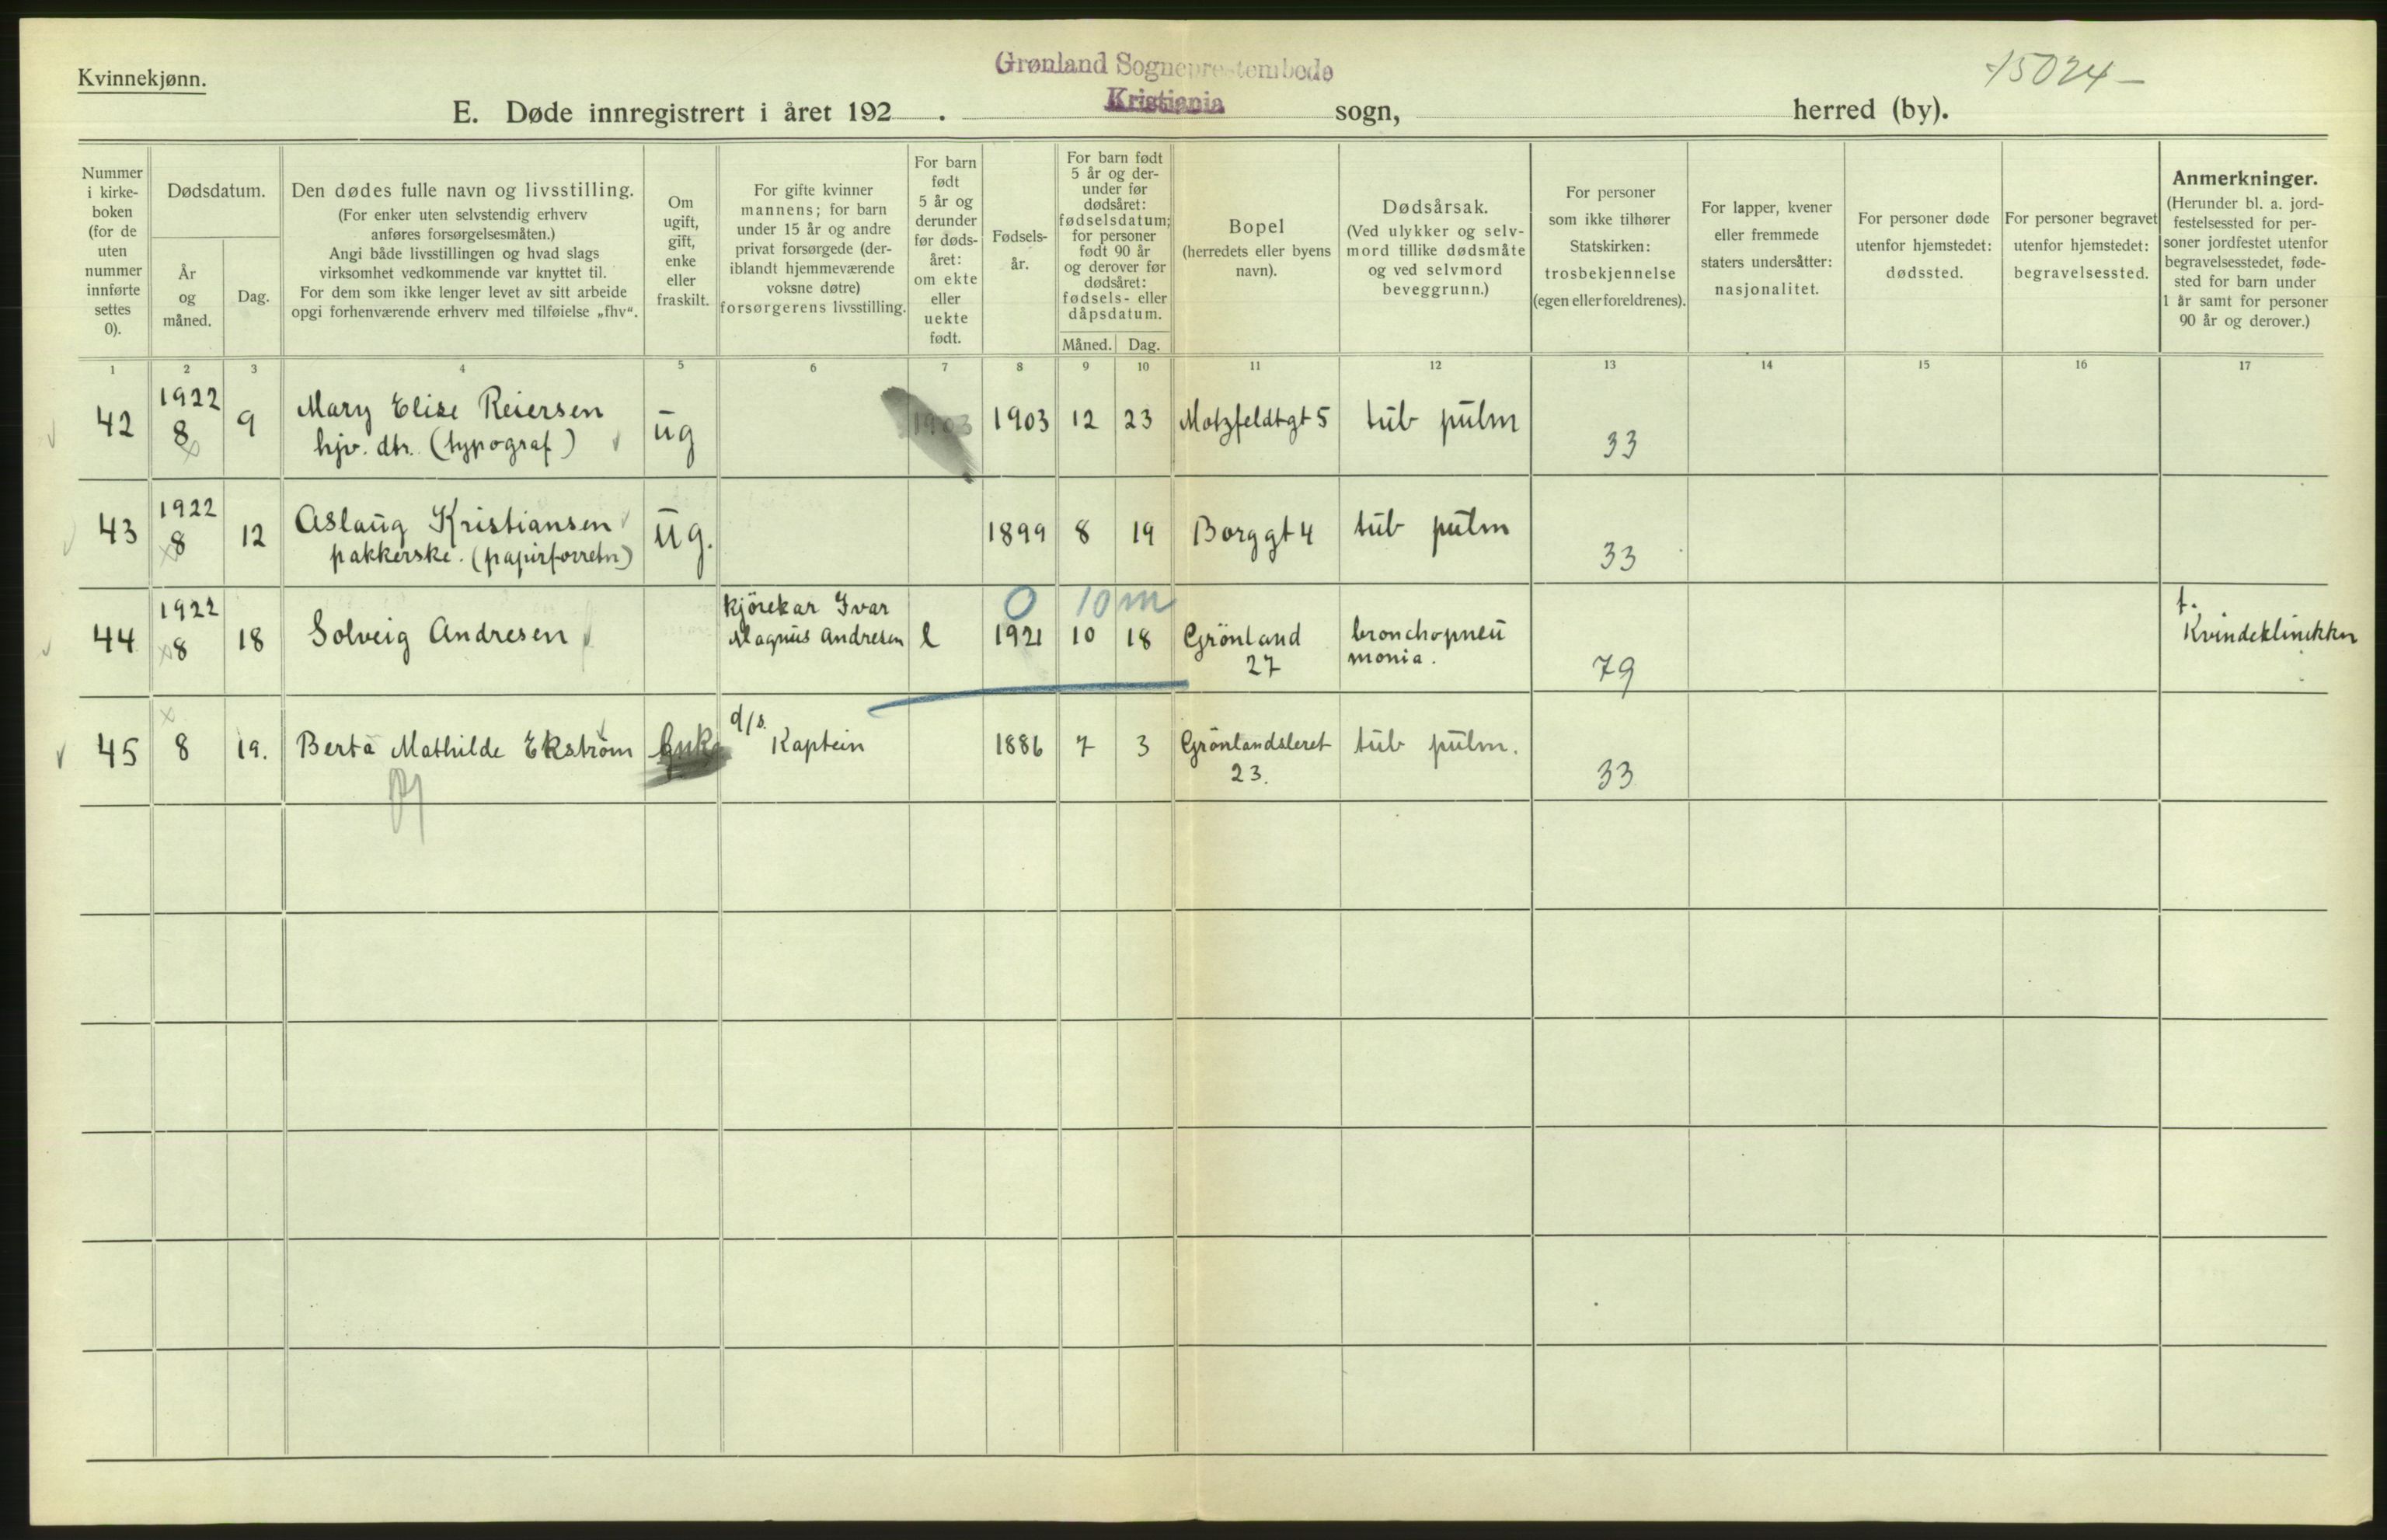 Kvinnekjønn.
Grønland Sogneprestembede
Kristiania
15024–
E. Døde innregistrert i året 192 . sogn, herred (by).
Nummer
i kirke-
boken
(for de
uten
nummer
innførte
settes
0).
Dødsdatum.
År
og
måned.
Dag.
Den dødes fulle navn og livsstilling.
(For enker uten selvstendig erhverv
anføres forsørgelsesmåten.)
Angi både livsstillingen og hvad slags
virksomhet vedkommende var knyttet til.
For dem som ikke lenger levet av sitt arbeide
opgi forhenværende erhverv med tilføielse „fhv“.
Om
ugift,
gift,
enke
eller
fraskilt.
For gifte kvinner
mannens; for barn
under 15 år og andre
privat forsørgede (der-
iblandt hjemmeværende
voksne døtre)
forsørgerens livsstilling.
For barn
født
5 år og
derunder
før døds-
året:
om ekte
eller
uekte
født.
Fødsels-
år.
For barn født
5 år og der-
under før
dødsåret:
fødselsdatum;
for personer
født 90 år
og derover før
dødsåret:
fødsels- eller
dåpsdatum.
Måned.
Dag.
Bopel
(herredets eller byens
navn).
Dødsårsak.
(Ved ulykker og selv-
mord tillike dødsmåte
og ved selvmord
beveggrunn.)
For personer
som ikke tilhører
Statskirken:
trosbekjennelse
(egen eller foreldrenes).
For lapper, kvener
eller fremmede
staters undersåtter:
nasjonalitet.
For personer døde
utenfor hjemstedet:
dødssted.
For personer begravet
utenfor hjemstedet:
begravelsessted.
Anmerkninger.
(Herunder bl. a. jord-
festelsessted for per-
soner jordfestet utenfor
begravelsesstedet, føde-
sted for barn under
1 år samt for personer
90 år og derover.)
1 2 3 4 5 6 7 8 9 10 11 12 13 14 15 16 17
42 1922 8 9 Mary Elise Reiersen ug 1903 1903 12 23 Motzfeldtgt 5 tub pulm 33
hjv. dtr. (typograf)
43 1922 8 12 Aslaug Kristiansen ug. 1899 8 19 Borggt 4 tub pulm 33
pakkerske. (papirforretn)
0 10 m
44 1922 8 18 Solveig Andresen kjörekar Ivar e 1921 10 18 Grönland bronchopneu 79 f.
Magnus Andresen 27 monia. Kvindeklinikken
45 8 19. Berta Mathilde Ekström d/s. Kaptein 1886 7 3 Grönlandsleret tub pulm. 33
23.